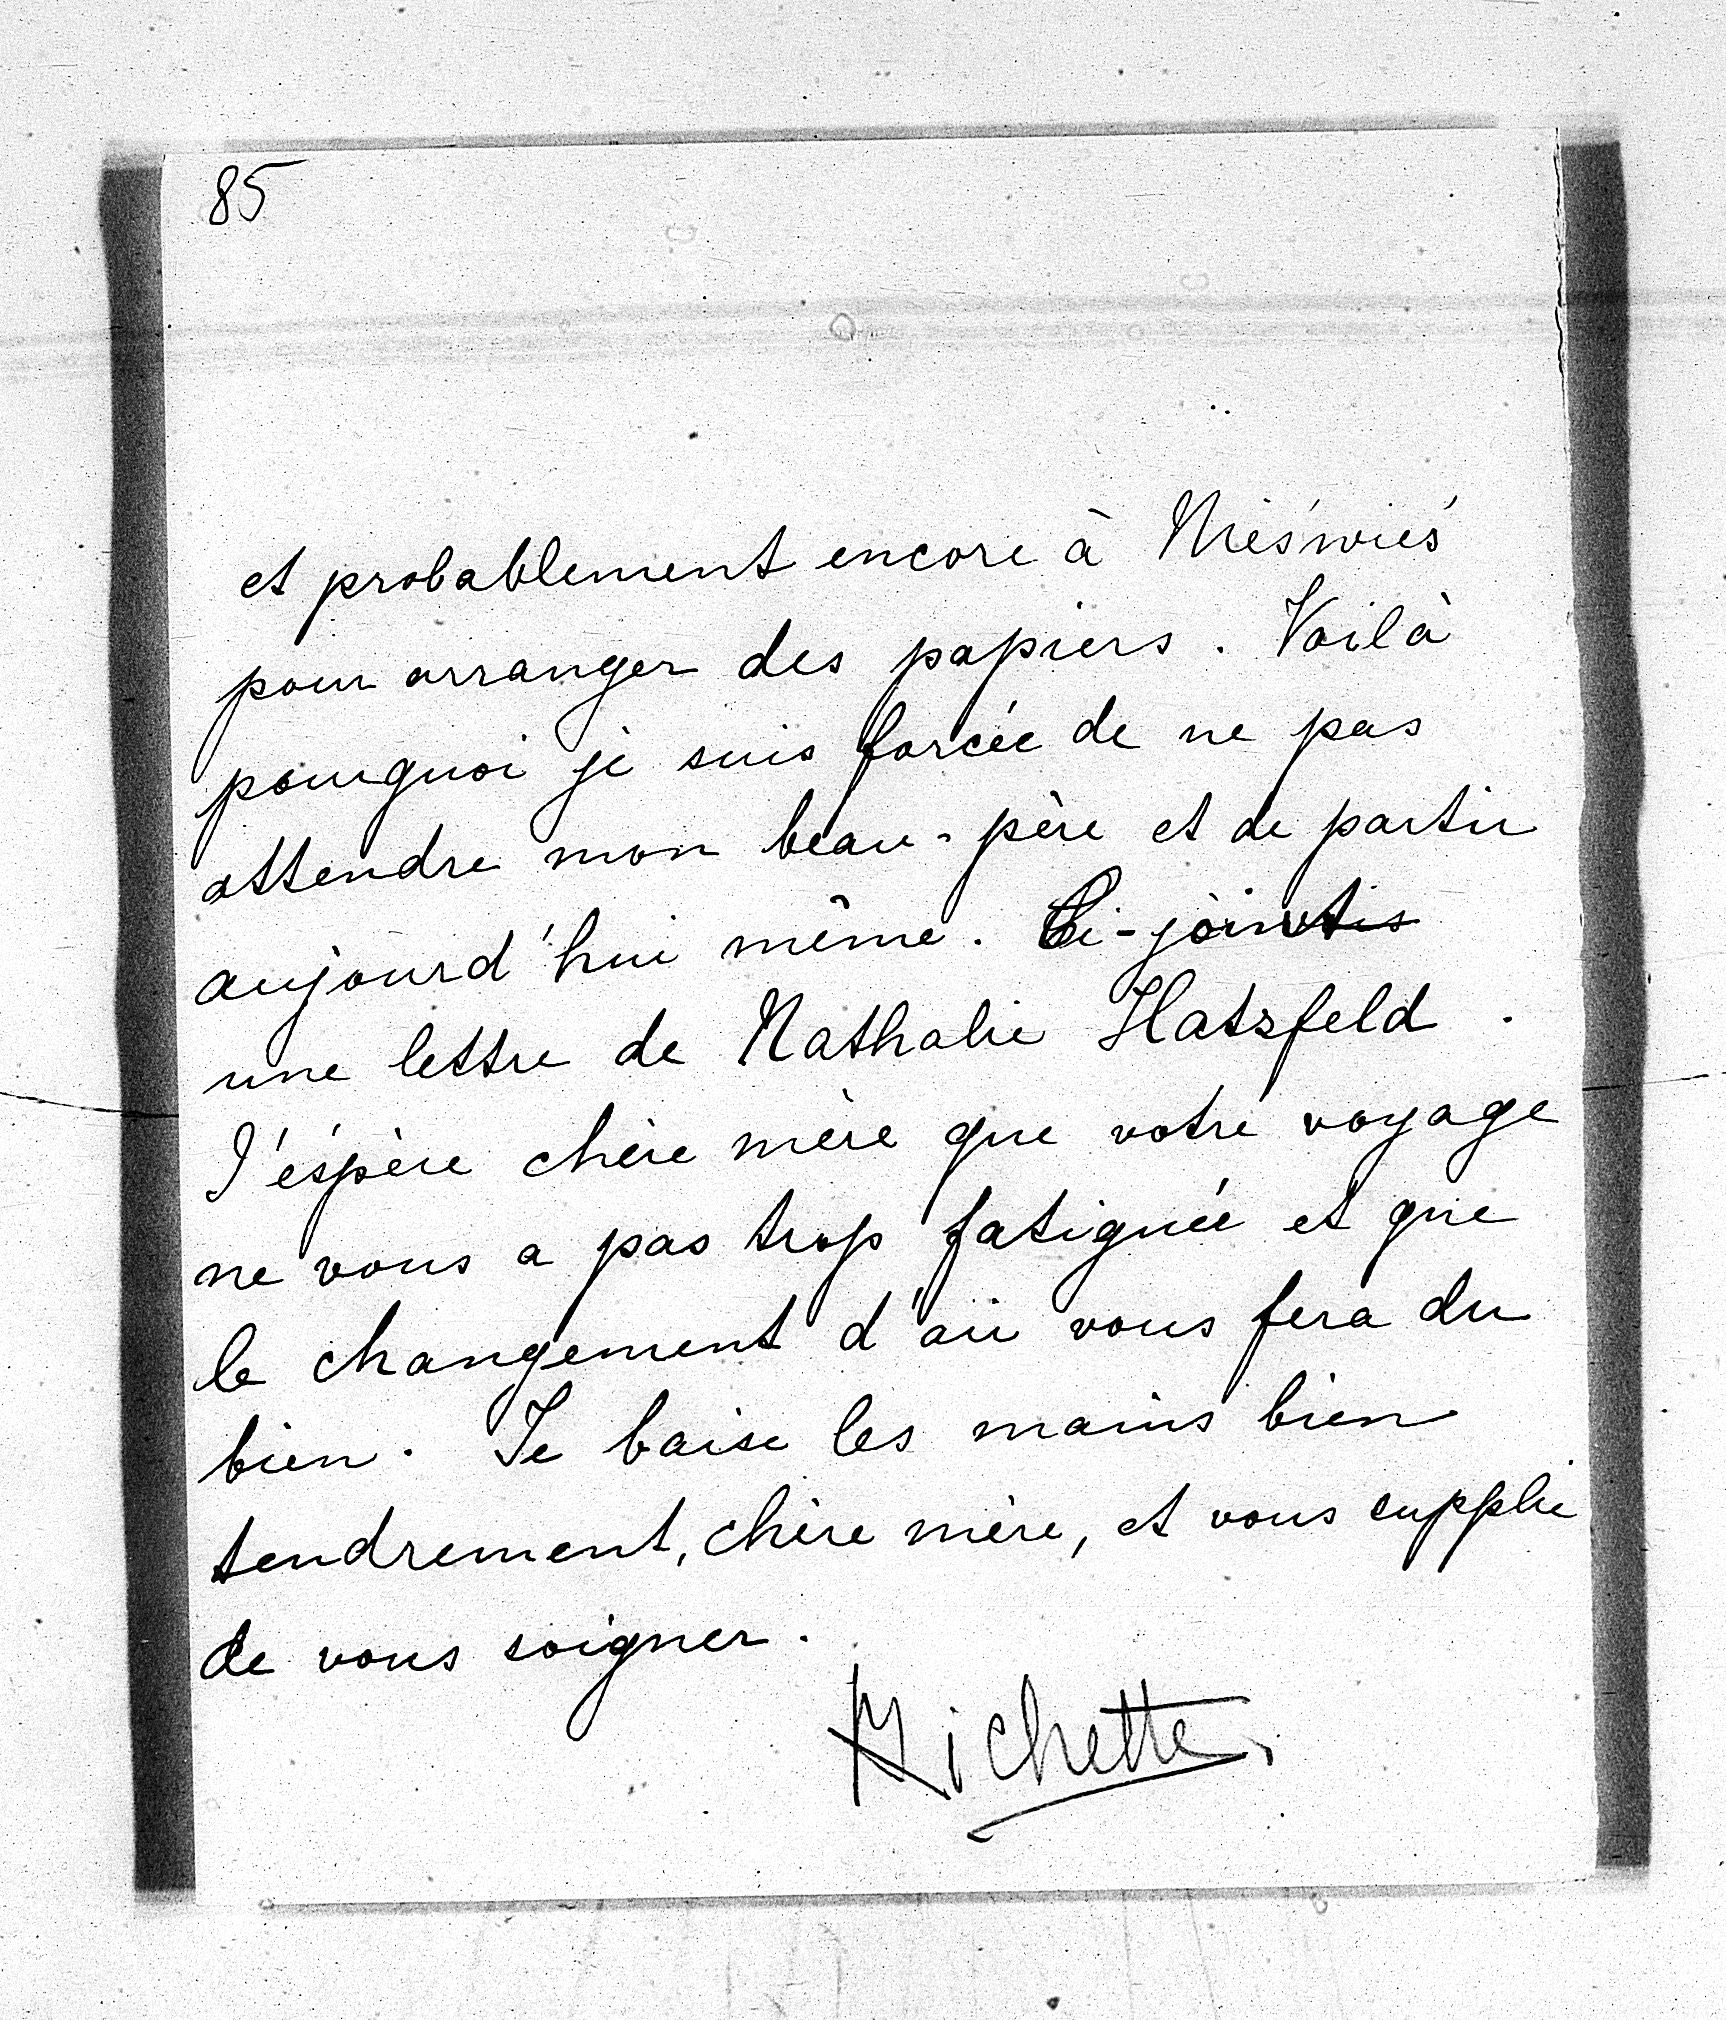 85
et probablement encore à Nieśwież
pour arranger des papiers. Voilà
pourquoi je suis forcée de ne pas
attendre mon beau-père et de partir
aujourd'hui même. Ci-joint
une lettre de Nathalie Hatzfeld.
J'éspère chère mère que votre voyage
ne vous a pas trop fatiguée et que
le changement d'air vous fera du
bien. Je baise les mains bien
tendrement, chère mère, et vous supplie
de vous soigner.
Bichette.